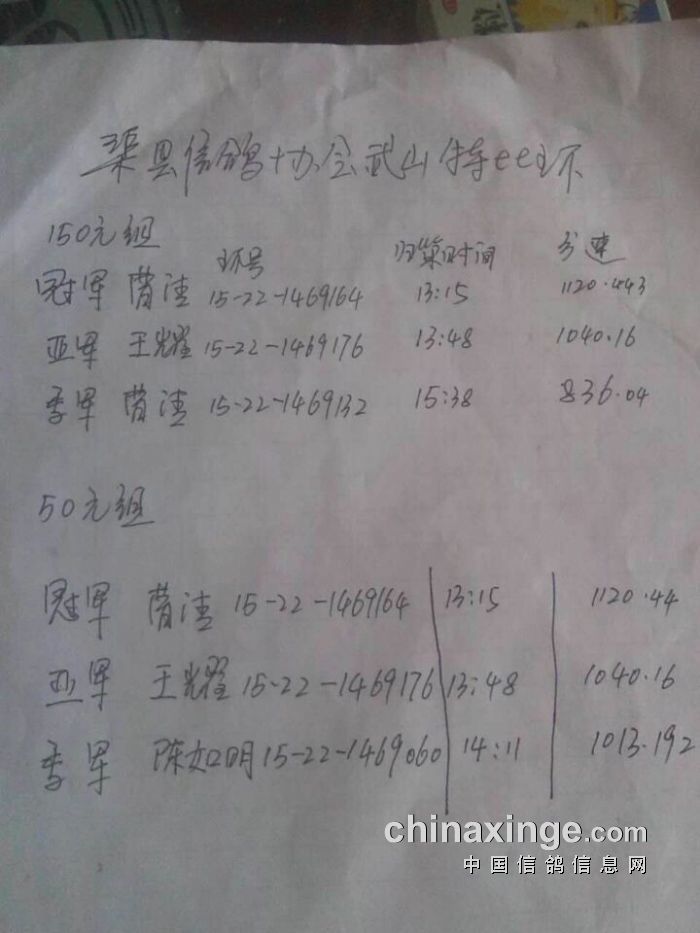 渠县信鸽协会武山特比环
150元组
环号 归巢时间 分速
冠军 蒋洁 15-22-1469164 13:15 1120.443
亚军 王耀 15-22-1469176 13:48 1040.16
季军 蒋洁 15-22-1469132 15:38 836.04
50元组
冠军 蒋洁 15-22-1469164 13:15 1120.44
亚军 王耀 15-22-1469176 13:48 1040.16
季军 陈如明 15-22-1469060 14:11 1013.192
chinaxinge.com
中国信鸽信息网